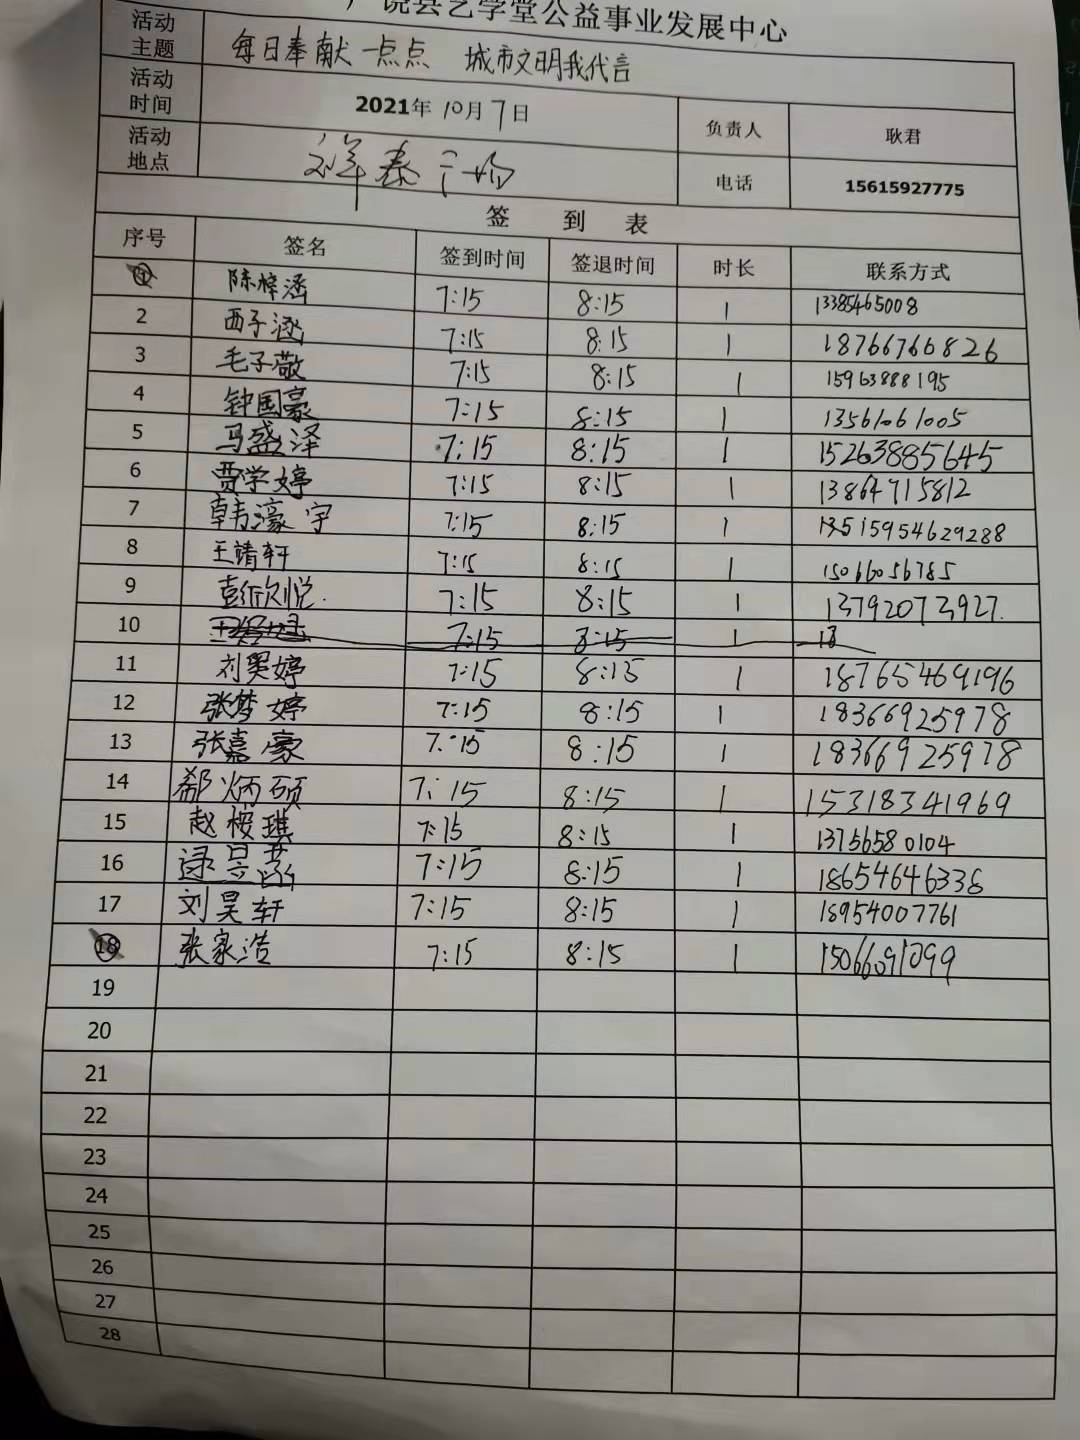 饶县艺学堂公益事业发展中心
活动主题 每日奉献一点点 城市文明我代言
活动时间 2021年10月7日 负责人 耿君
活动地点 祥泰广场 电话 15615927775
签 到 表
序号 签名 签到时间 签退时间 时长 联系方式
① 陈梓涵 7:15 8:15 1 13385465008
2 西子涵 7:15 8:15 1 18766766826
3 毛子敬 7:15 8:15 1 15963888195
4 钟国豪 7:15 8:15 1 13561061005
5 马盛泽 7:15 8:15 1 15263885645
6 贾学婷 7:15 8:15 1 13864715812
7 韩濠宇 7:15 8:15 1 54629288
8 王靖轩 7:15 8:15 1 15066056785
9 彭欣悦. 7:15 8:15 1 13792073927.
10 7:15 8:15 1
11 刘昊婷 7:15 8:15 1 18765469196
12 张梦婷 7:15 8:15 1 18366925978
13 张嘉豪 7:15 8:15 1 18366925978
14 郗炳硕 7:15 8:15 1 15318341969
15 赵桉琪 7:15 8:15 1 13756580104
16 逯昊菡 7:15 8:15 1 18654646338
17 刘昊轩 7:15 8:15 1 18954007761
⑱ 张家浩 7:15 8:15 1 15066091099
19
20
21
22
23
24
25
26
27
28